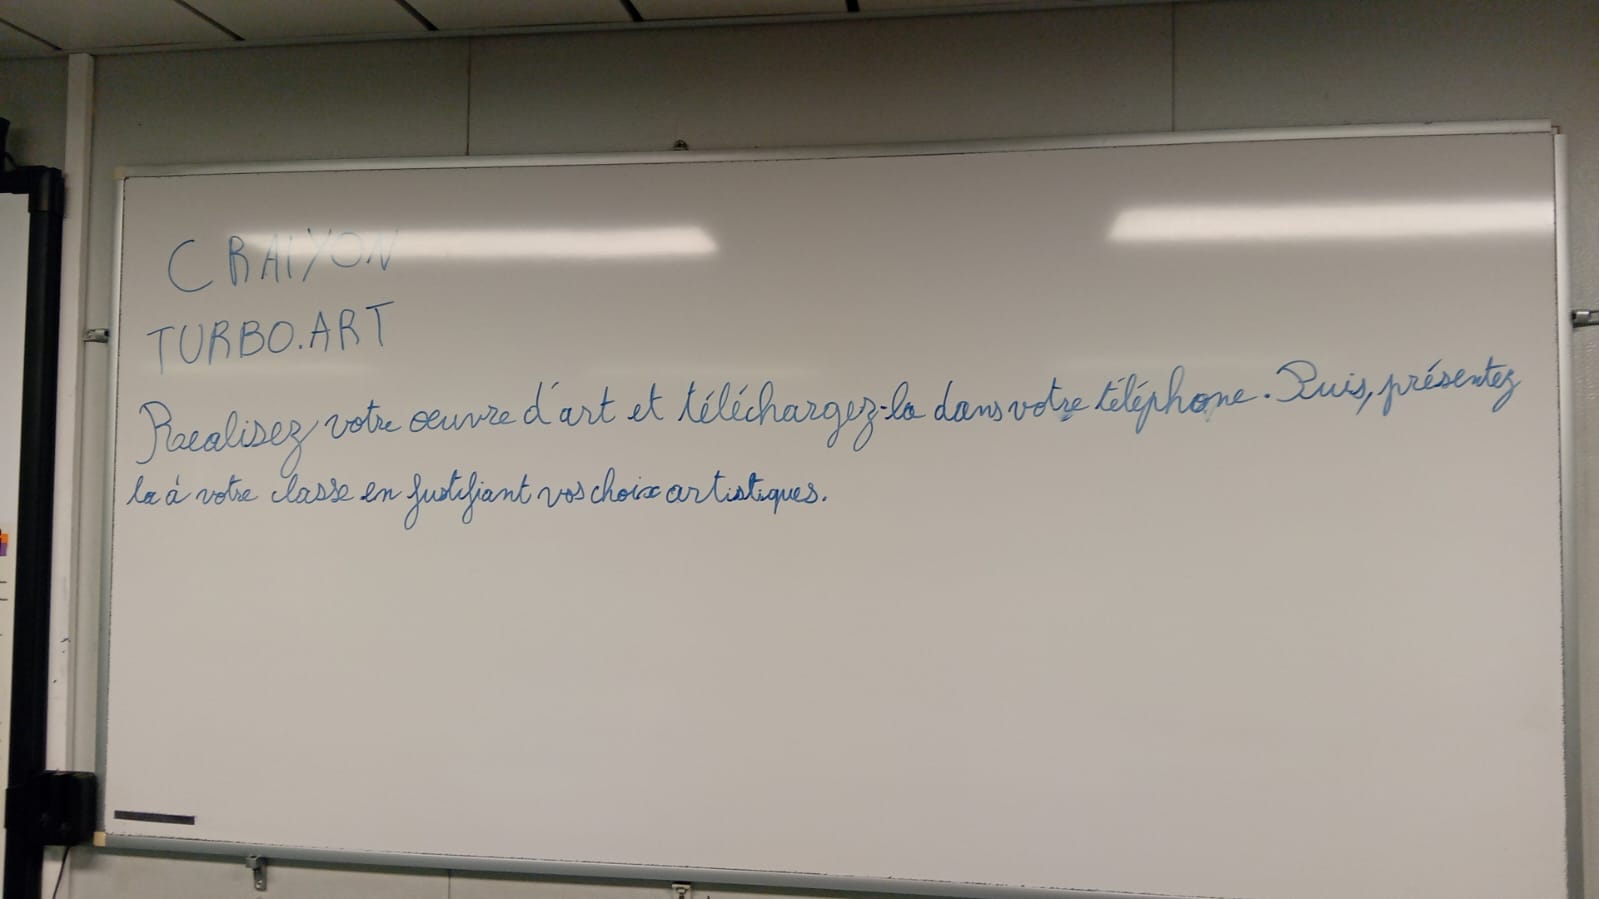 CRAIYON
TURBO.ART
Realisez votre oeuvre d'art et téléchargez-la dans votre téléphone. Puis, présentez
la à votre classe en justifiant vos choix artistiques.